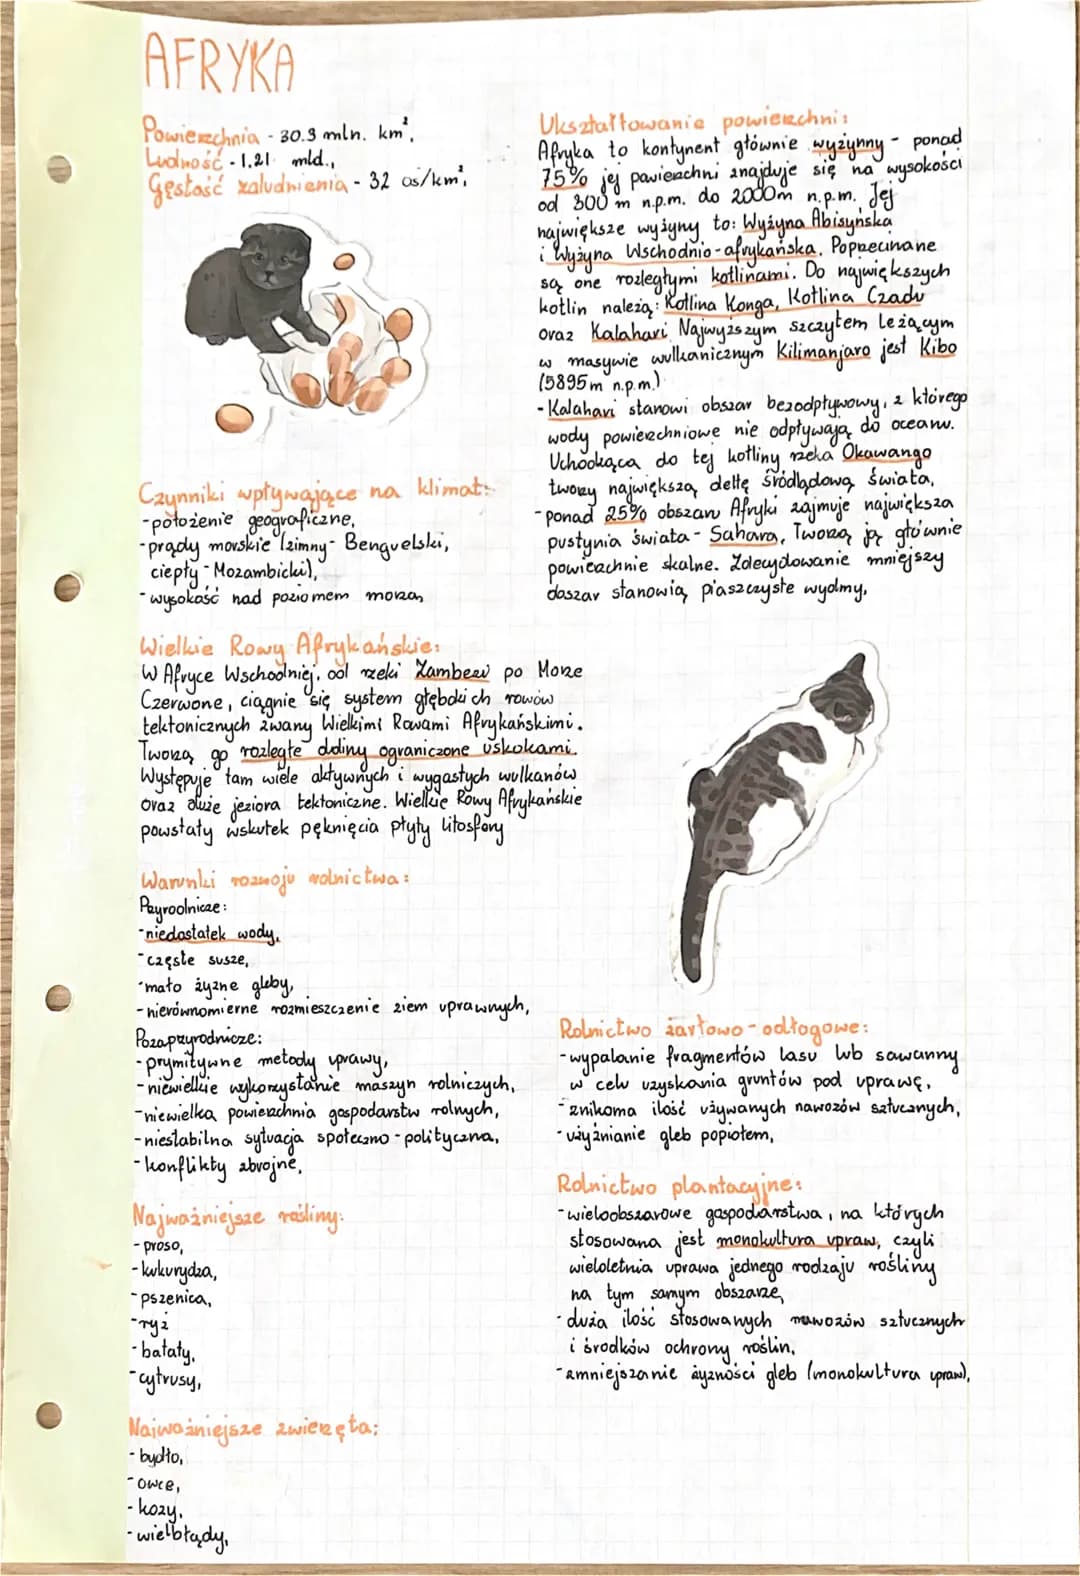 AFRYKA
Powierzchnia - 30.3 mln. km²,
Ludność - 1.21 mld.,
Gęstość zaludnienia - 32 os/km²,
Czynniki wpływające na klimat:
- położenie geograficzne,
- prądy morskie (zimny - Benguelski,
ciepły - Mozambicki),
- wysokość nad poziomem morza,
Wielkie Rowy Afrykańskie:
W Afryce Wschodniej, od rzeki Zambezi po Morze
Czerwone, ciągnie się system głębokich rowów
tektonicznych zwany Wielkimi Rowami Afrykańskimi.
Tworzą go rozległe doliny ograniczone uskokami.
Występuje tam wiele aktywnych i wygasłych wulkanów
oraz duże jeziora tektoniczne. Wielkie Rowy Afrykańskie
powstały wskutek pęknięcia płyty litosfery
Warunki rozwoju rolnictwa:
Przyrodnicze:
- niedostatek wody,
- częste susze,
- mało żyzne gleby,
- nierównomierne rozmieszczenie ziem uprawnych,
Pozaprzyrodnicze:
- prymitywne metody uprawy,
- niewielkie wykorzystanie maszyn rolniczych,
- niewielka powierzchnia gospodarstw rolnych,
- niestabilna sytuacja społeczno - polityczna,
- konflikty zbrojne,
Najważniejsze rośliny:
- proso,
- kukurydza,
- pszenica,
- ryż
- bataty,
- cytrusy,
Najważniejsze zwierzęta:
- bydło,
- owce,
- kozy,
- wielbłądy,
Ukształtowanie powierzchni:
Afryka to kontynent głównie wyżynny - ponad
75% jej powierzchni znajduje się na wysokości
od 300 m n.p.m. do 2000m n.p.m. Jej
największe wyżyny to: Wyżyna Abisyńska
i Wyżyna Wschodnio-afrykańska. Poprzecinane
są one rozległymi kotlinami. Do największych
kotlin należą: Kotlina Konga, Kotlina Czadu
oraz Kalahari. Najwyższym szczytem leżącym
w masywie wulkanicznym Kilimanjaro jest Kibo
(5895 m n.p.m.)
- Kalahari stanowi obszar bezodpływowy, z którego
wody powierzchniowe nie odpływają do oceanu.
Uchodząca do tej kotliny rzeka Okawango
tworzy największą deltę śródlądową świata,
- ponad 25% obszaru Afryki zajmuje największa
pustynia świata - Sahara. Tworzą ją głównie
powierzchnie skalne. Zdecydowanie mniejszy
obszar stanowią piaszczyste wydmy,
Rolnictwo żarłowo - odłogowe:
- wypalanie fragmentów lasu lub sawanny
w celu uzyskania gruntów pod uprawę,
- znikoma ilość używanych nawozów sztucznych,
- użyźnianie gleb popiołem,
Rolnictwo plantacyjne:
- wieloobszarowe gospodarstwa, na których
stosowana jest monokultura upraw, czyli
wieloletnia uprawa jednego rodzaju rośliny
na tym samym obszarze,
- duża ilość stosowanych nawozów sztucznych
i środków ochrony roślin,
- zmniejszanie żyzności gleb (monokultura upraw),